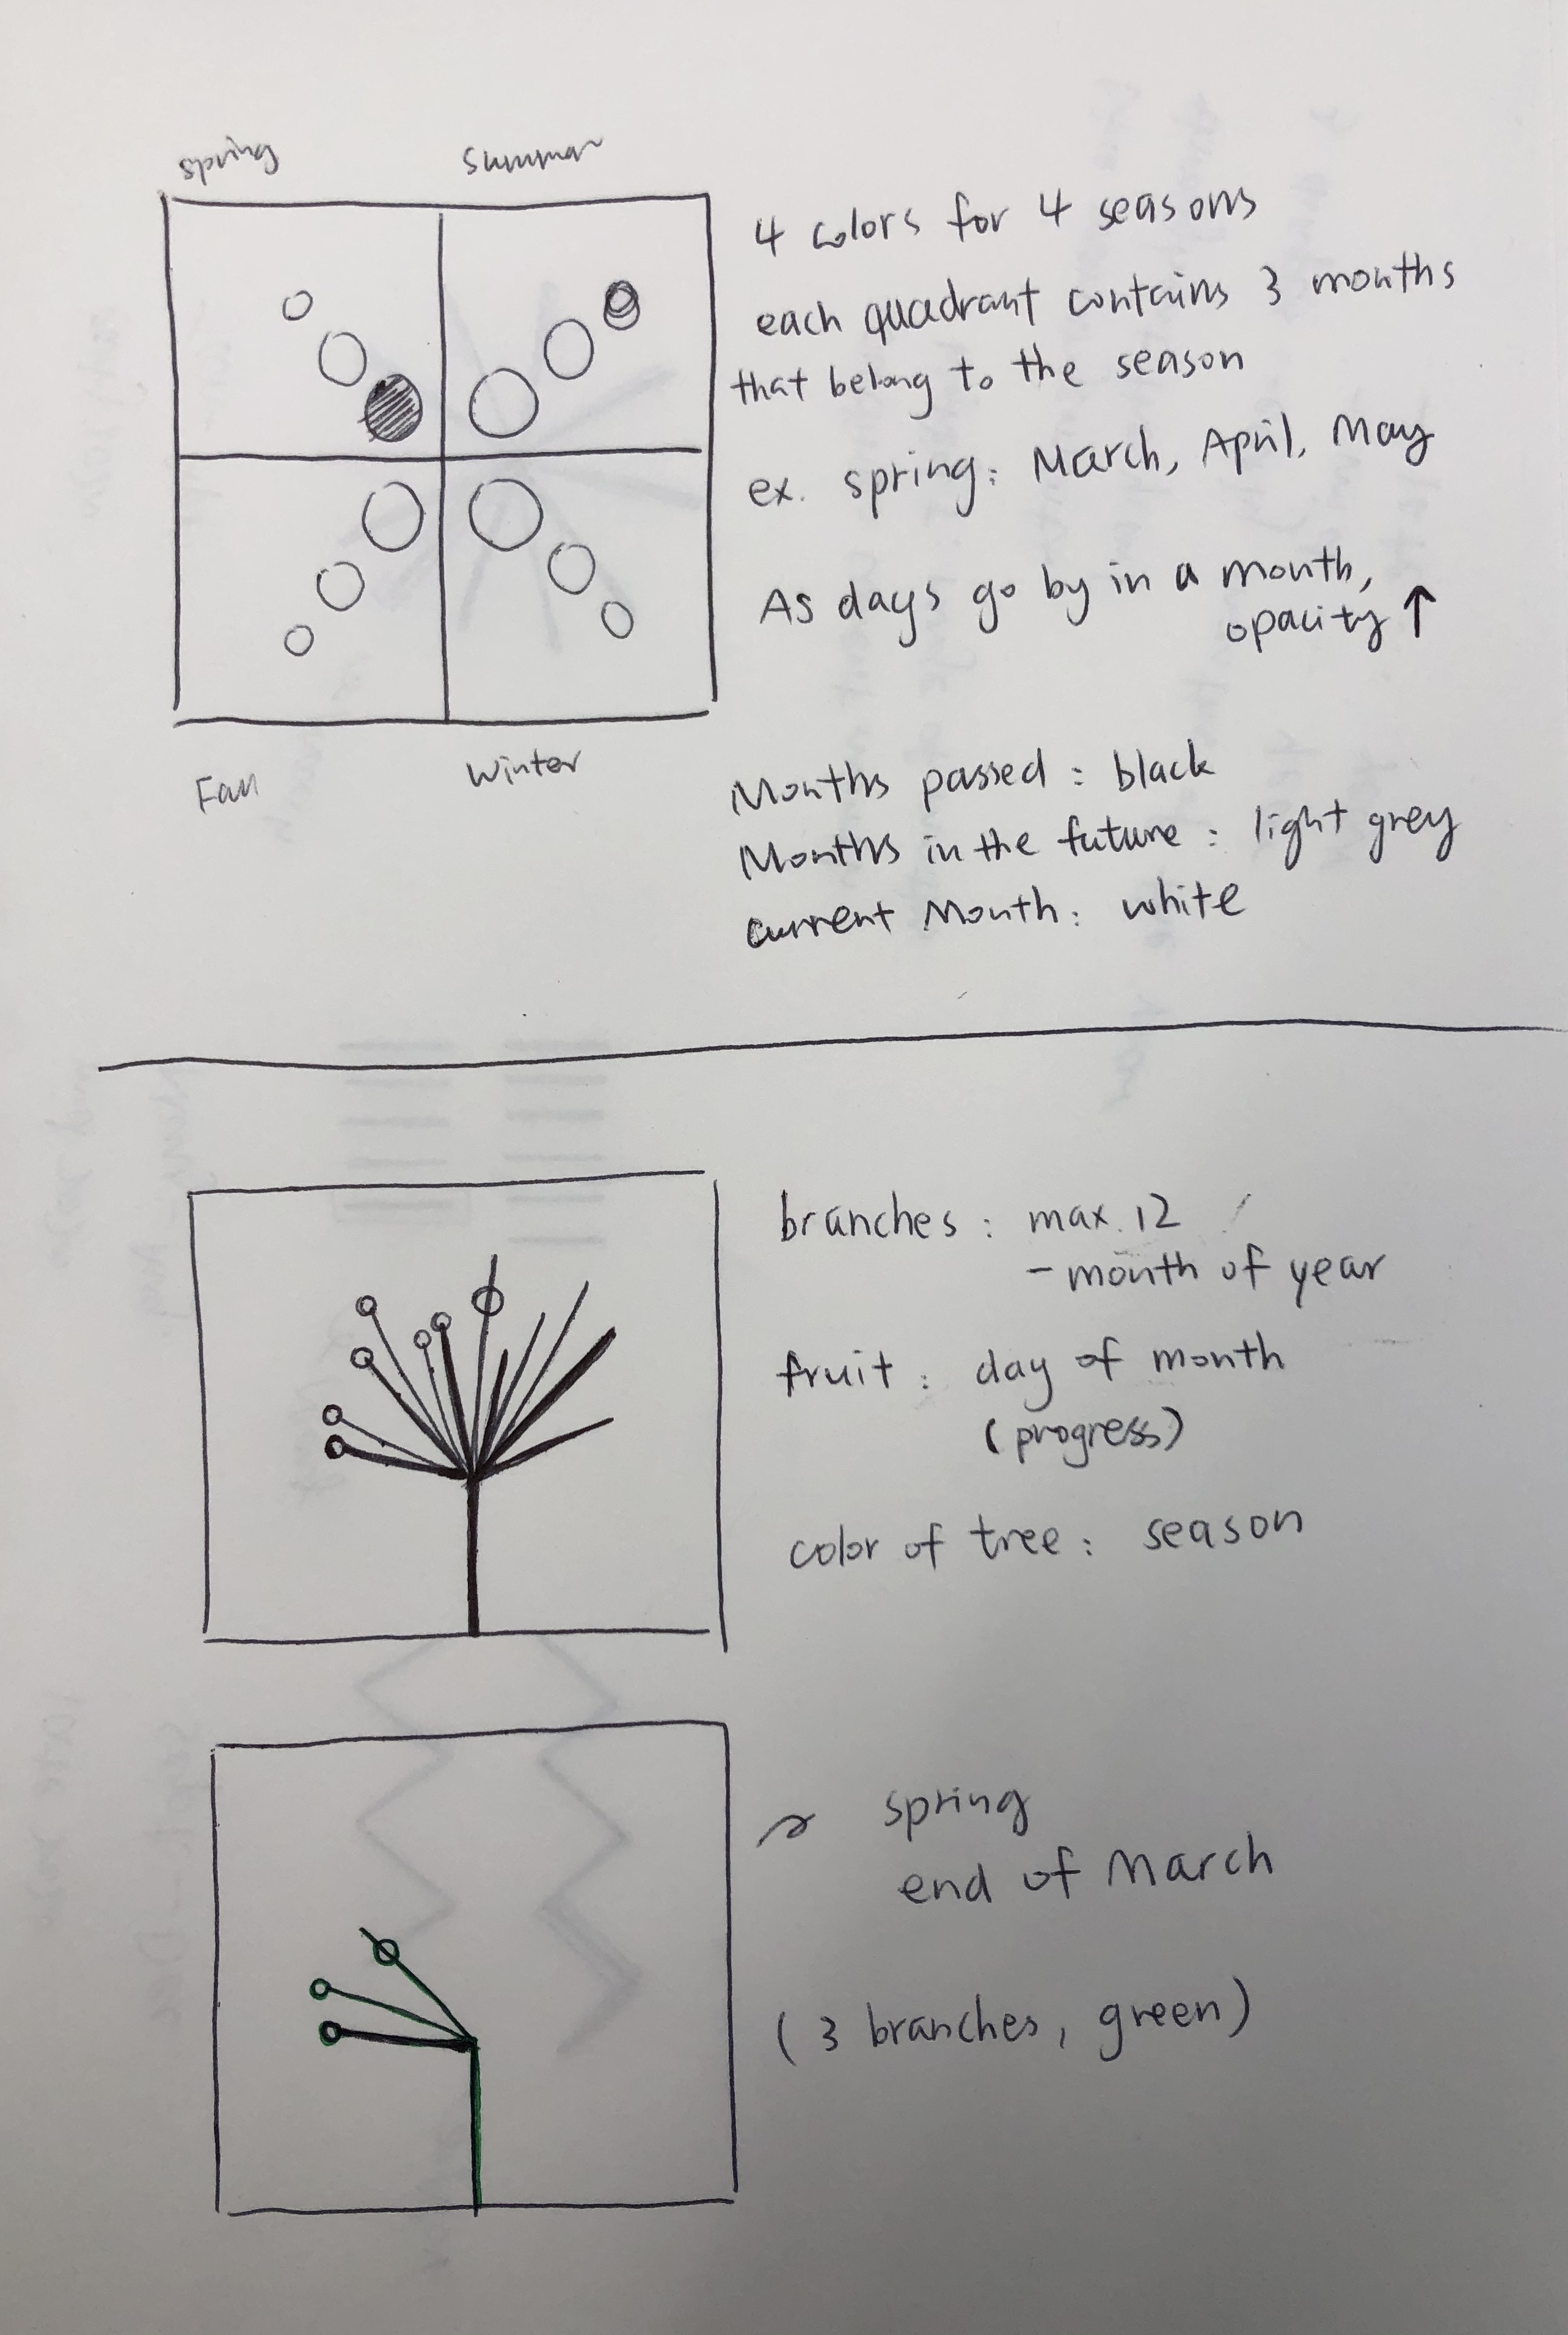 spring
summer
4 colors for 4 seasons
each quadrant contains 3 months
that belong to the season
ex. spring: March, April, May
As days go by in a month,
opacity ↑
Fall
Winter
Months passed : black
Months in the future : light grey
current Month : white
branches : max. 12
- month of year
fruit : day of month
(progress)
color of tree : season
spring
end of March
(3 branches, green)